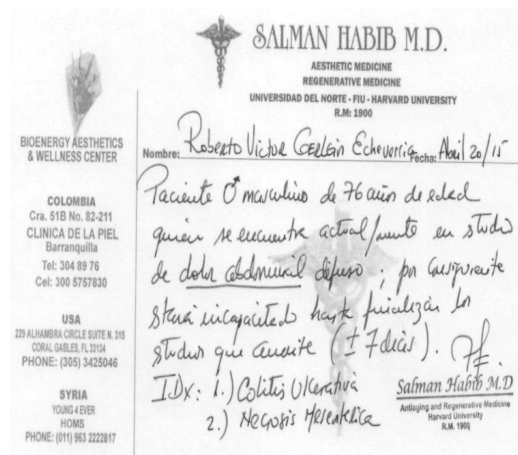 SALMAN HABIB M.D.
AESTHETIC MEDICINE
REGENERATIVE MEDICINE
UNIVERSIDAD DEL NORTE - FIU - HARVARD UNIVERSITY
R.M: 1900
BIOENERGY AESTHETICS
& WELLNESS CENTER
COLOMBIA
Cra. 51B No. 82-211
CLINICA DE LA PIEL
Barranquilla
Tel: 304 89 76
Cel: 300 5757830
USA
229 ALHAMBRA CIRCLE SUITE N. 315
CORAL GABLES, FL 33134
PHONE: (305) 3425046
SYRIA
YOUNG 4 EVER
HOMS
PHONE: (011) 963 2222817
Nombre: Roberto Victor Gerlein Echeverria Fecha: Abril 20/15
Paciente ♂ masculino de 76 años de edad
quien se encuentra actual/mente en studio
de dolor abdominal difuso; por consiguiente
stará incapacitado hasta finalizar los
studios que amerite (± 7 dias).
IDx: 1.) Colitis Ulcerativa
2.) Necrosis Mesenterica
Salman Habib M.D
Antiaging and Regenerative Medicine
Harvard University
R.M. 1900